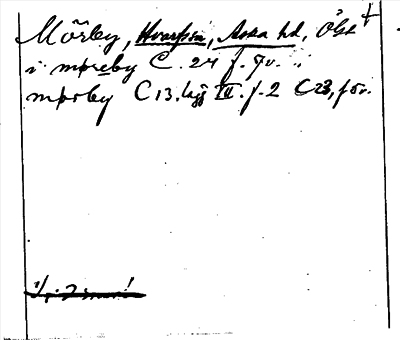 Mörby, Hvarfsn, Aska hd, Ögl
i møreby C. 24 f. 7v.
mørby C 13. lägg III. f. 2 C 23, f 5v.